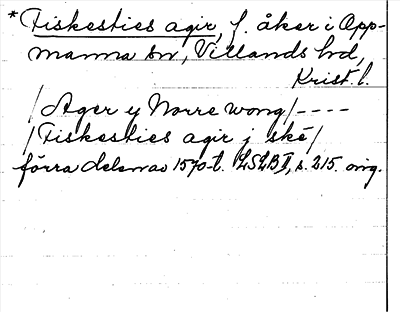 *Fiskesties agir, f. åker i Opp-
manna sn, Villands hd,
Krist. l.
/Ager y Norre wong/----
/Fiskesties agir j ské/
förra delen av 1570-t. LSLB II, s. 215. orig.